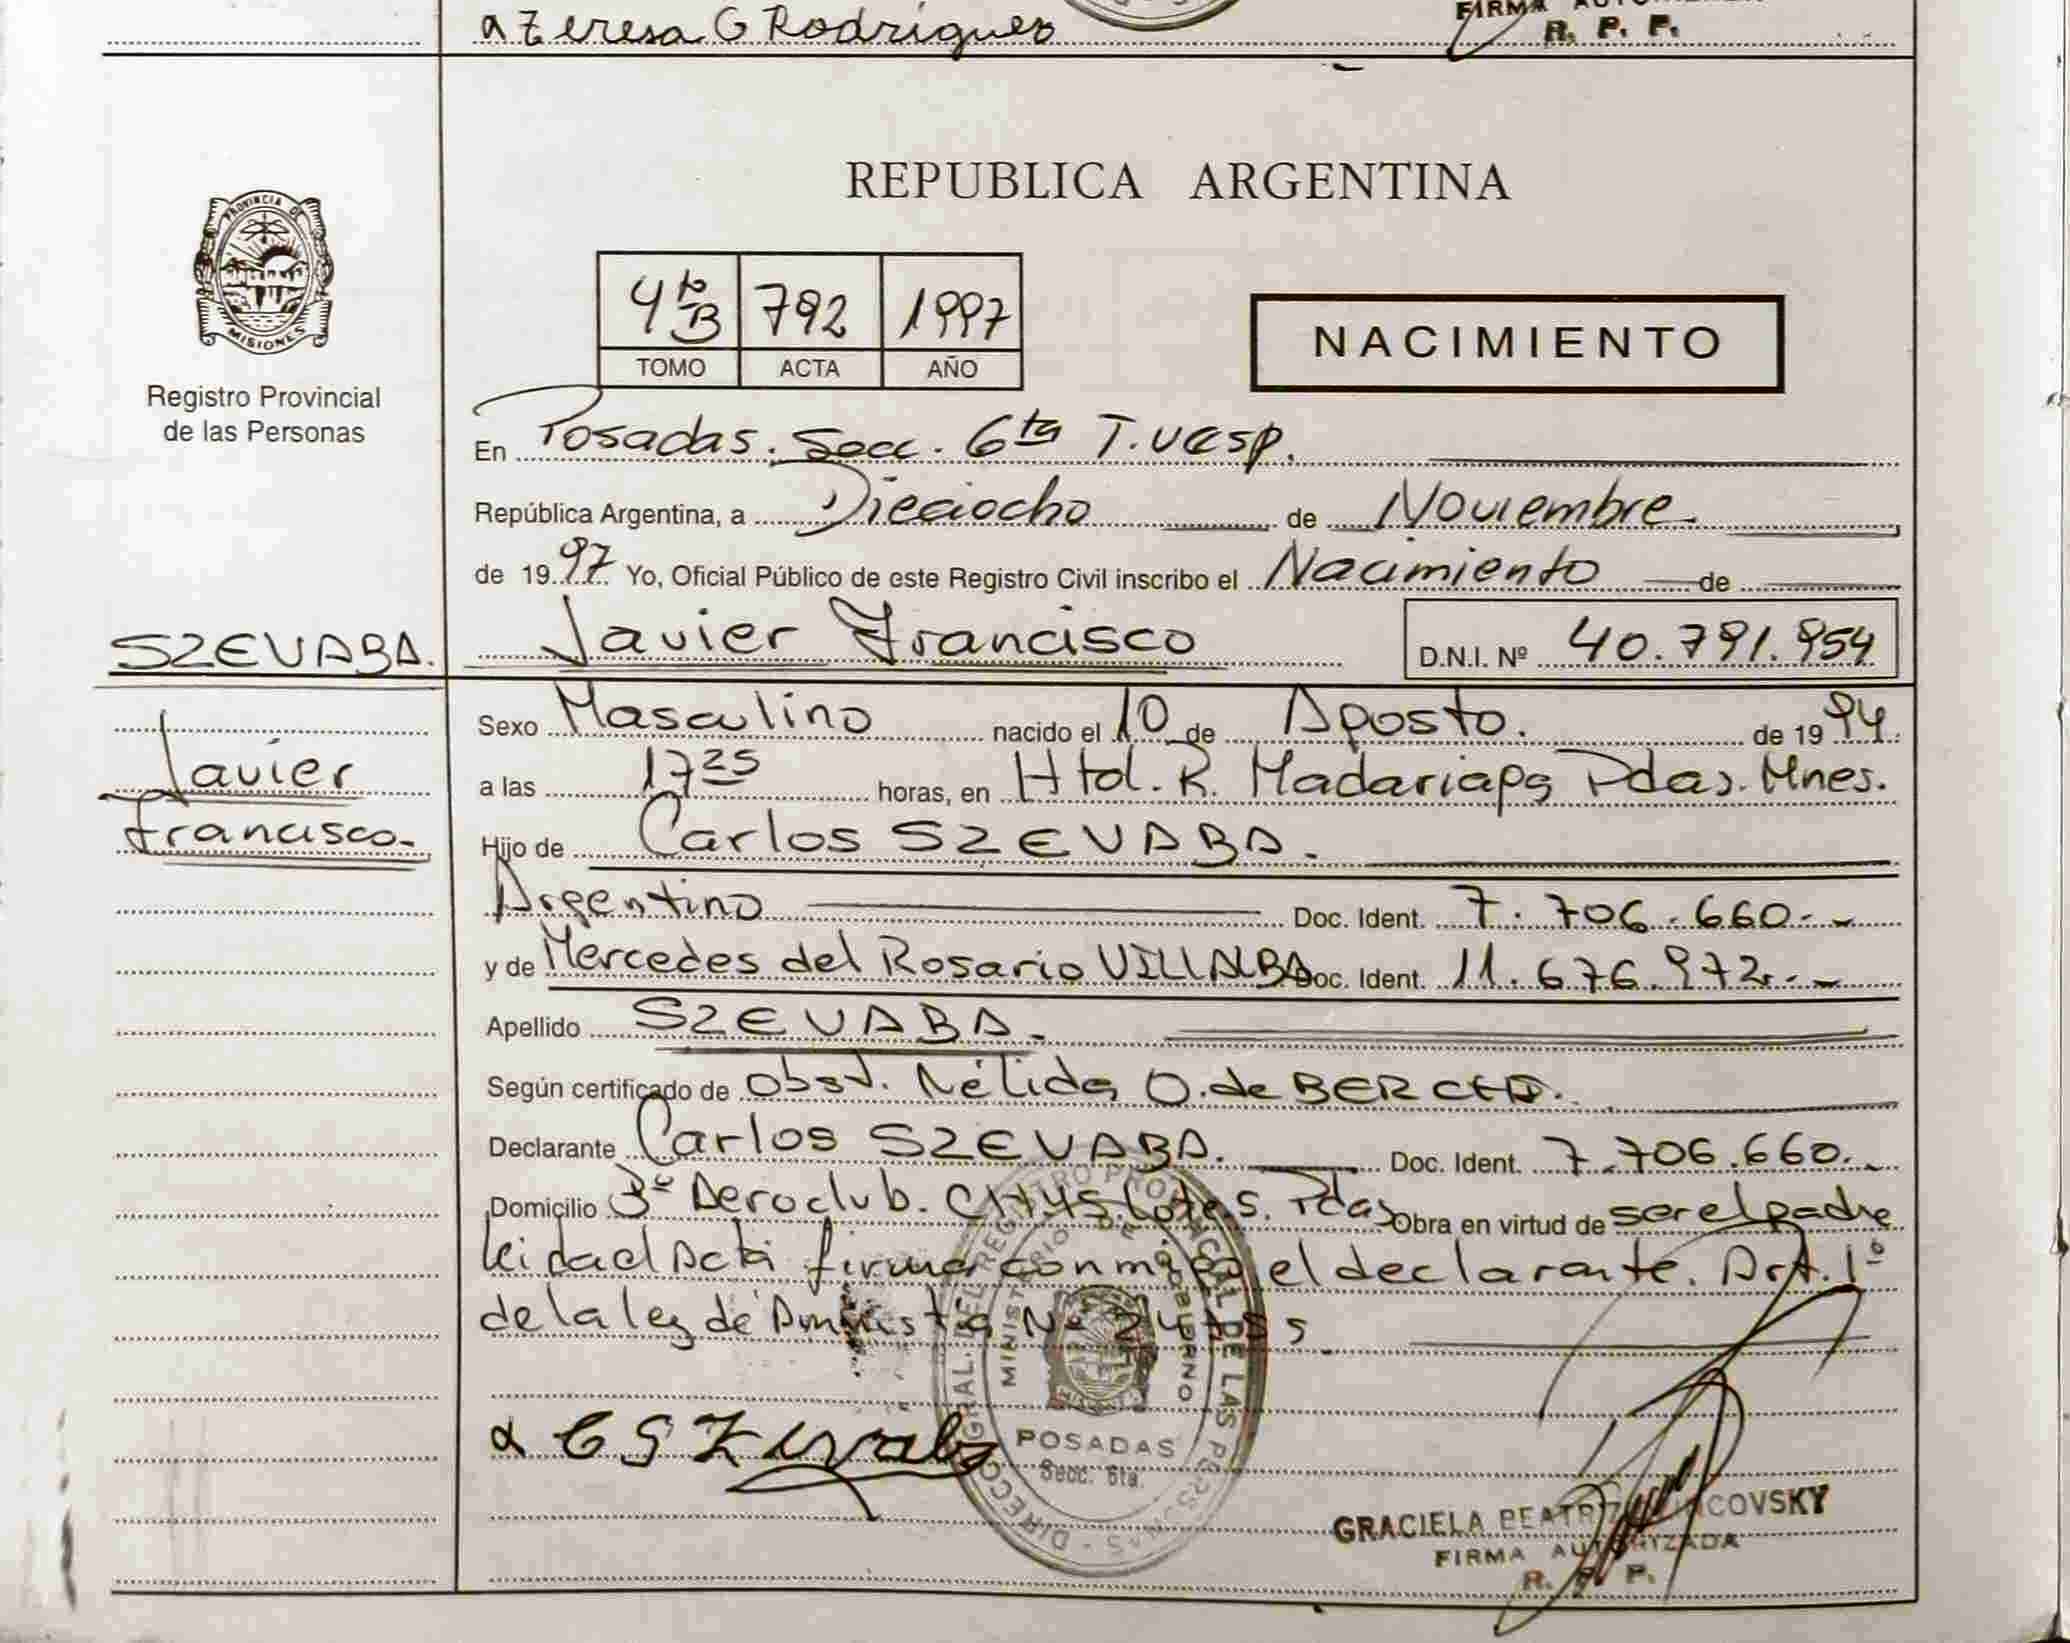 a Teresa G Rodriguez
FIRMA
R. P. P.
PROVINCIA DE
MISIONES
Registro Provincial
de las Personas
REPUBLICA ARGENTINA
4to B 792 1997
TOMO ACTA AÑO
NACIMIENTO
En Posadas. Secc. 6ta T. vesp.
República Argentina, a Dieciocho de Noviembre
de 1997 Yo, Oficial Público de este Registro Civil inscribo el Nacimiento de
SZEVABA. Javier Francisco D.N.I. Nº 40.791.954
Javier
Francisco.
Sexo Masculino nacido el 10 de Agosto. de 1994
a las 17 25 horas, en Htal. R. Madariaga Pdas. Mnes.
Hijo de Carlos SZEVABA.
Argentino Doc. Ident. 7.706.660.-
y de Mercedes del Rosario VILLALBA Doc. Ident. 11.676.972.-
Apellido SZEVABA.
Según certificado de Obst. Nélida O. de
Declarante Carlos SZEVABA. Doc. Ident. 7.706.660.
Domicilio Aeroclub. Pdas Obra en virtud de ser el padre
Leida el Acta firma conmigo el declarante. Art. 1º
de la ley de Amnistía Nº
DIRECC. GRAL. DEL REGISTRO PROVINCIAL DE LAS PERSONAS
MINISTERIO DE GOBIERNO
POSADAS
Secc. 6ta.
GRACIELA BEATRIZ
FIRMA AUTORIZADA
R. P. P.